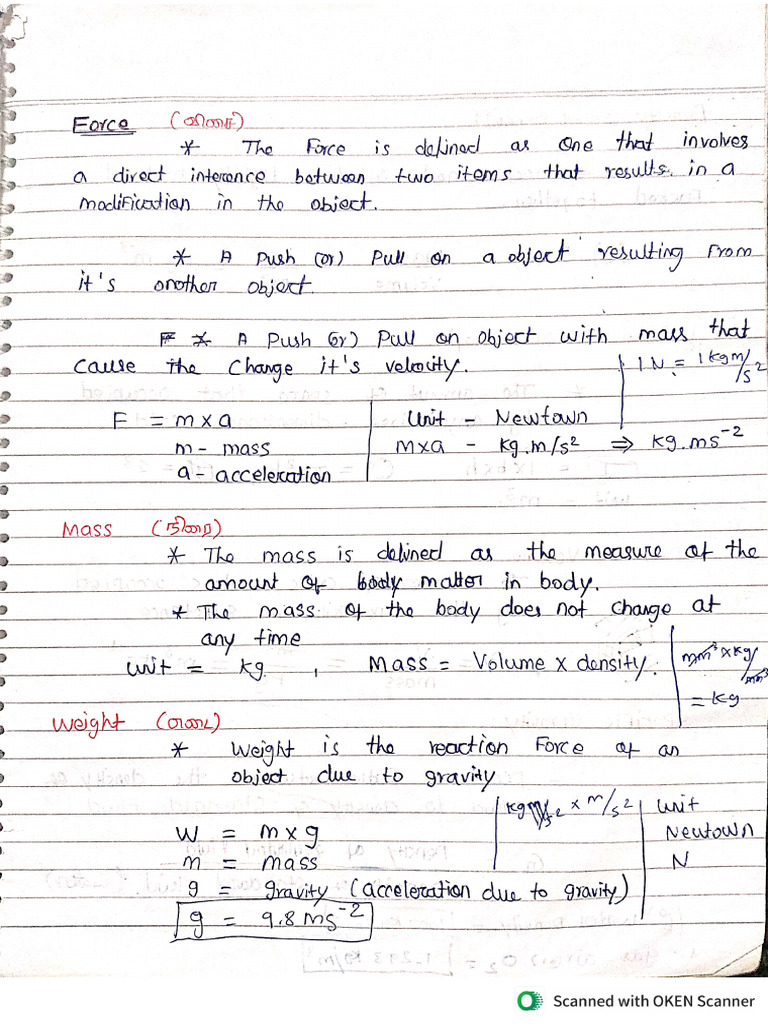 Force (விசை)
* The Force is defined as one that involves
a direct interence between two items that results in a
modification in the object.
* A Push (or) Pull on a object resulting from
it's another object
* A Push (or) Pull on object with mass that
cause the change it's velocity.
1 N = 1 kg m/s2
F = m x a
m - mass
a - acceleration
Unit - Newtown
mxa - kg.m/s² ⇒ kg.ms⁻²
Mass (நிறை)
* The mass is defined as the measure of the
amount of body matter in body.
* The mass of the body does not change at
any time
Unit = kg , Mass = Volume x density.
mm³ x kg/mm³
= kg
Weight (எடை)
* Weight is the reaction Force of an
object due to gravity
W = m x g
m = mass
g = gravity (acceleration due to gravity)
g = 9.8 ms⁻²
kg x m/s2
Unit
Newtown
N
Scanned with OKEN Scanner